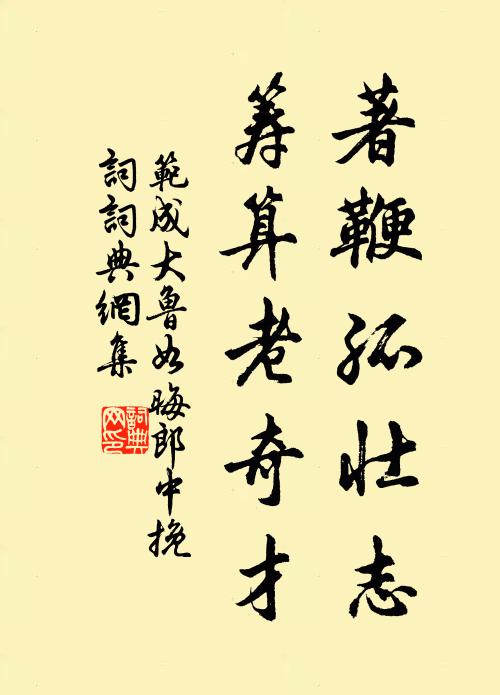 著鞭孤壯志
筭算老奇才
範成大魯如晦郎中挽
詞詞典網集
詞典網印